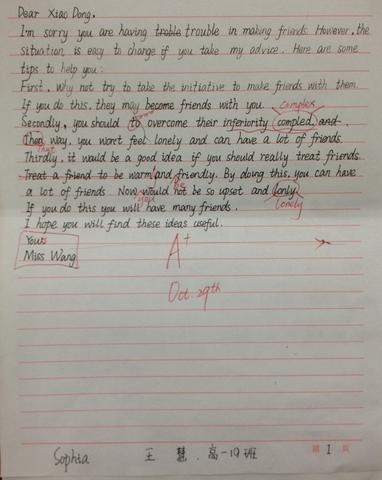 Dear Xiao Dong,
I'm sorry you are having troble trouble in making friends. However, the
situation is easy to change if you take my advice. Here are some
tips to help you:
First, why not try to take the initiative to make friends with them.
If you do this, they may become friends with you.
complex
Secondly, you should to overcome their inferiority compled, and
Then way, you won't feel lonely and can have a lot of friends.
That
Thirdly, it would be a good idea if you should really treat friends.
Treat a friend to be warm and friendly. By doing this, you can have
a lot of friends. Now would not be so upset and lonly.
you
lonely
If you do this you will have many friends.
I hope you will find these ideas useful.
Yours
Miss Wang
A+
Oct. 29th
Sophia 王 慧. 高一19班 第 1 页